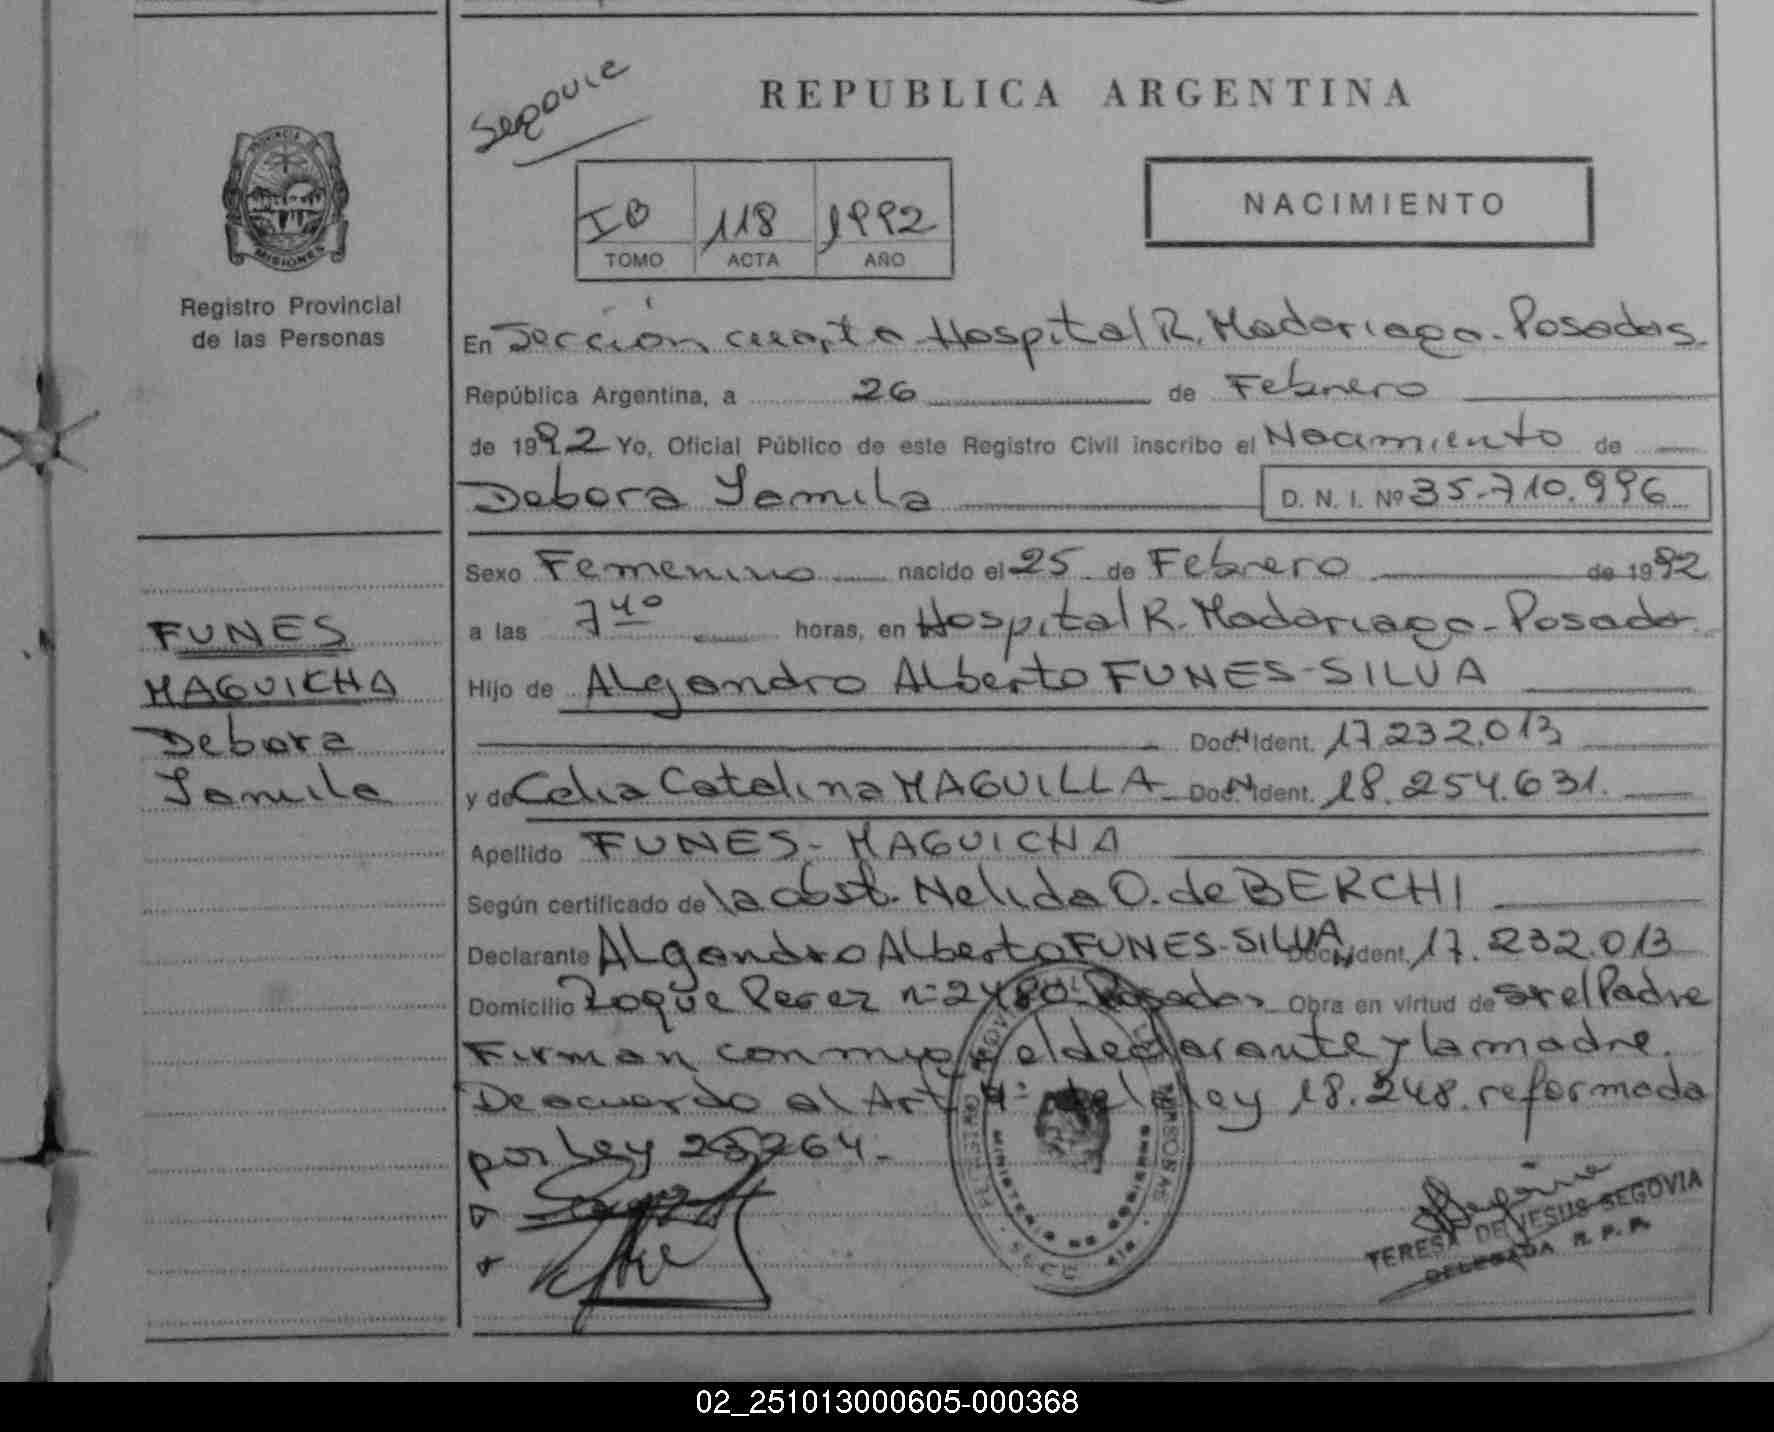 Segovia
REPUBLICA ARGENTINA
PROVINCIA DE
MISIONES
Registro Provincial
de las Personas
IB 118 1992
TOMO ACTA AÑO
NACIMIENTO
En Sección cuarta Hospital R. Madariaga. Posadas.
República Argentina, a 26 de Febrero
de 1992 Yo, Oficial Público de este Registro Civil inscribo el Nacimiento de
Debora Jamila D. N. I. Nº 35.710.996
Sexo Femenino nacido el 25 de Febrero de 1992
a las 7 40 horas, en Hospital R. Madariaga - Posadas
Hijo de Alejandro Alberto FUNES-SILVA
Doc. N Ident. 17.232.013
y de Celia Catalina MAGUILLA Doc. N Ident. 18.254.631.
Apellido FUNES - MAGUICHA
Según certificado de la obst. Nelida O. de BERCHI
Declarante Alejandro Alberto FUNES-SILVA Doc. N Ident. 17.232.013
Domicilio Roque Perez nº 2480 Posadas Obra en virtud de ser el Padre
Firman conmigo el declarante y la madre.
De acuerdo al Art. 4º de la ley 18.248. reformada
por ley 23264.
FUNES
MAGUICHA
Debora
Jamila
MINISTERIO DE GOBIERNO
TERESA DE JESUS SEGOVIA
DELEGADA R. P. P.
02_251013000605-000368